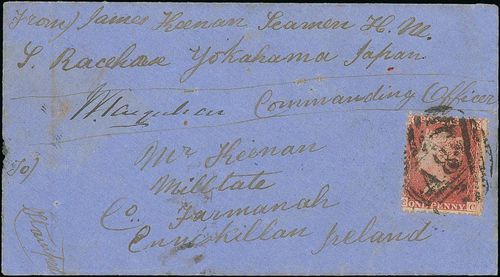 From) James Keenan Seamen H. M.
S. Racehose Yokahama Japan
Commanding Officer
To)
Mr Keenan
Milltate
Co. Farmanah
Enniskillan Ireland
A8
ONE PENNY
C